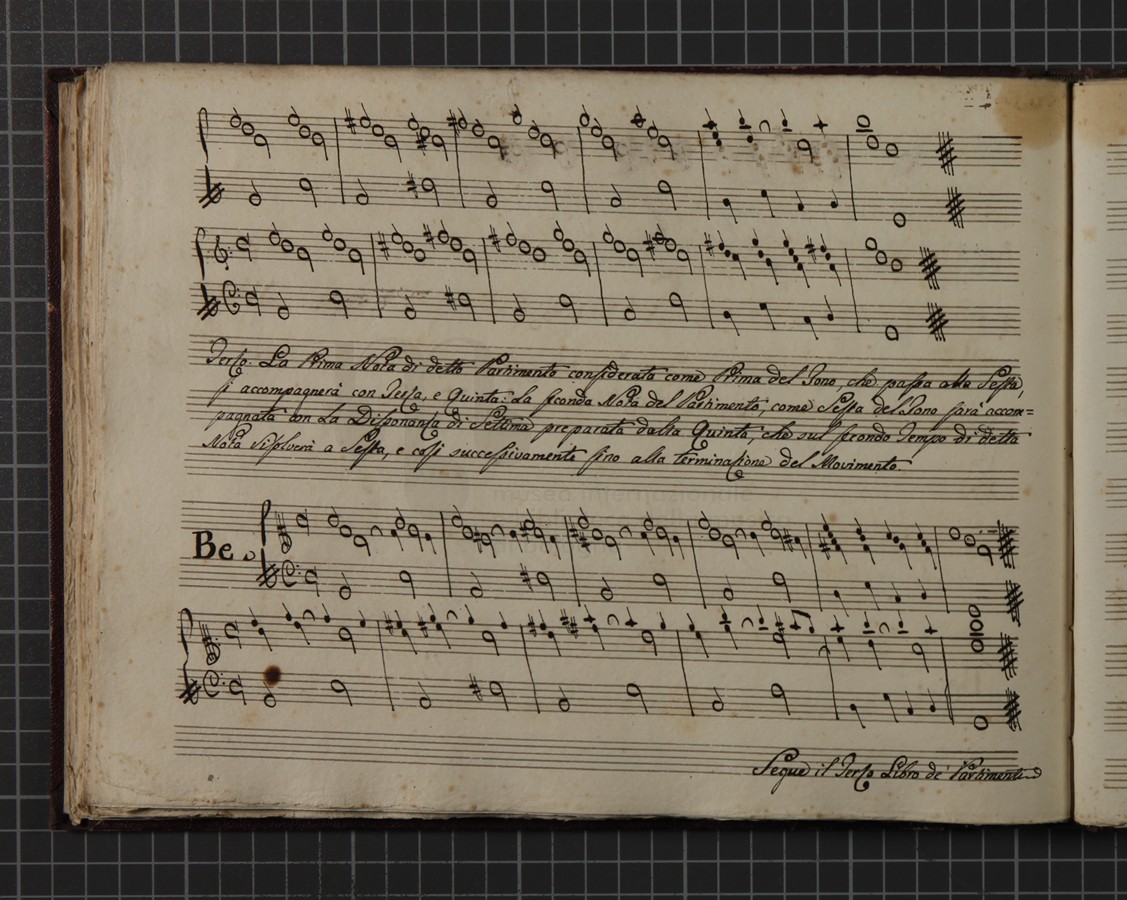 Terzo: La Prima Nota di detto Partimento considerata come Prima del Tono, che passa alla Sesta,
si accompagnerà con Terza, e Quinta: La seconda Nota del Partimento, come Sesta del Tono sarà accom=
pagnata con La Dissonanza di Settima preparata dalla Quinta, che sul secondo Tempo di detta
Nota risolverà a Sesta, e così successivamente sino alla terminazione del Movimento.
museo internazionale
Be
Segue il Terzo Libro de' Partimenti